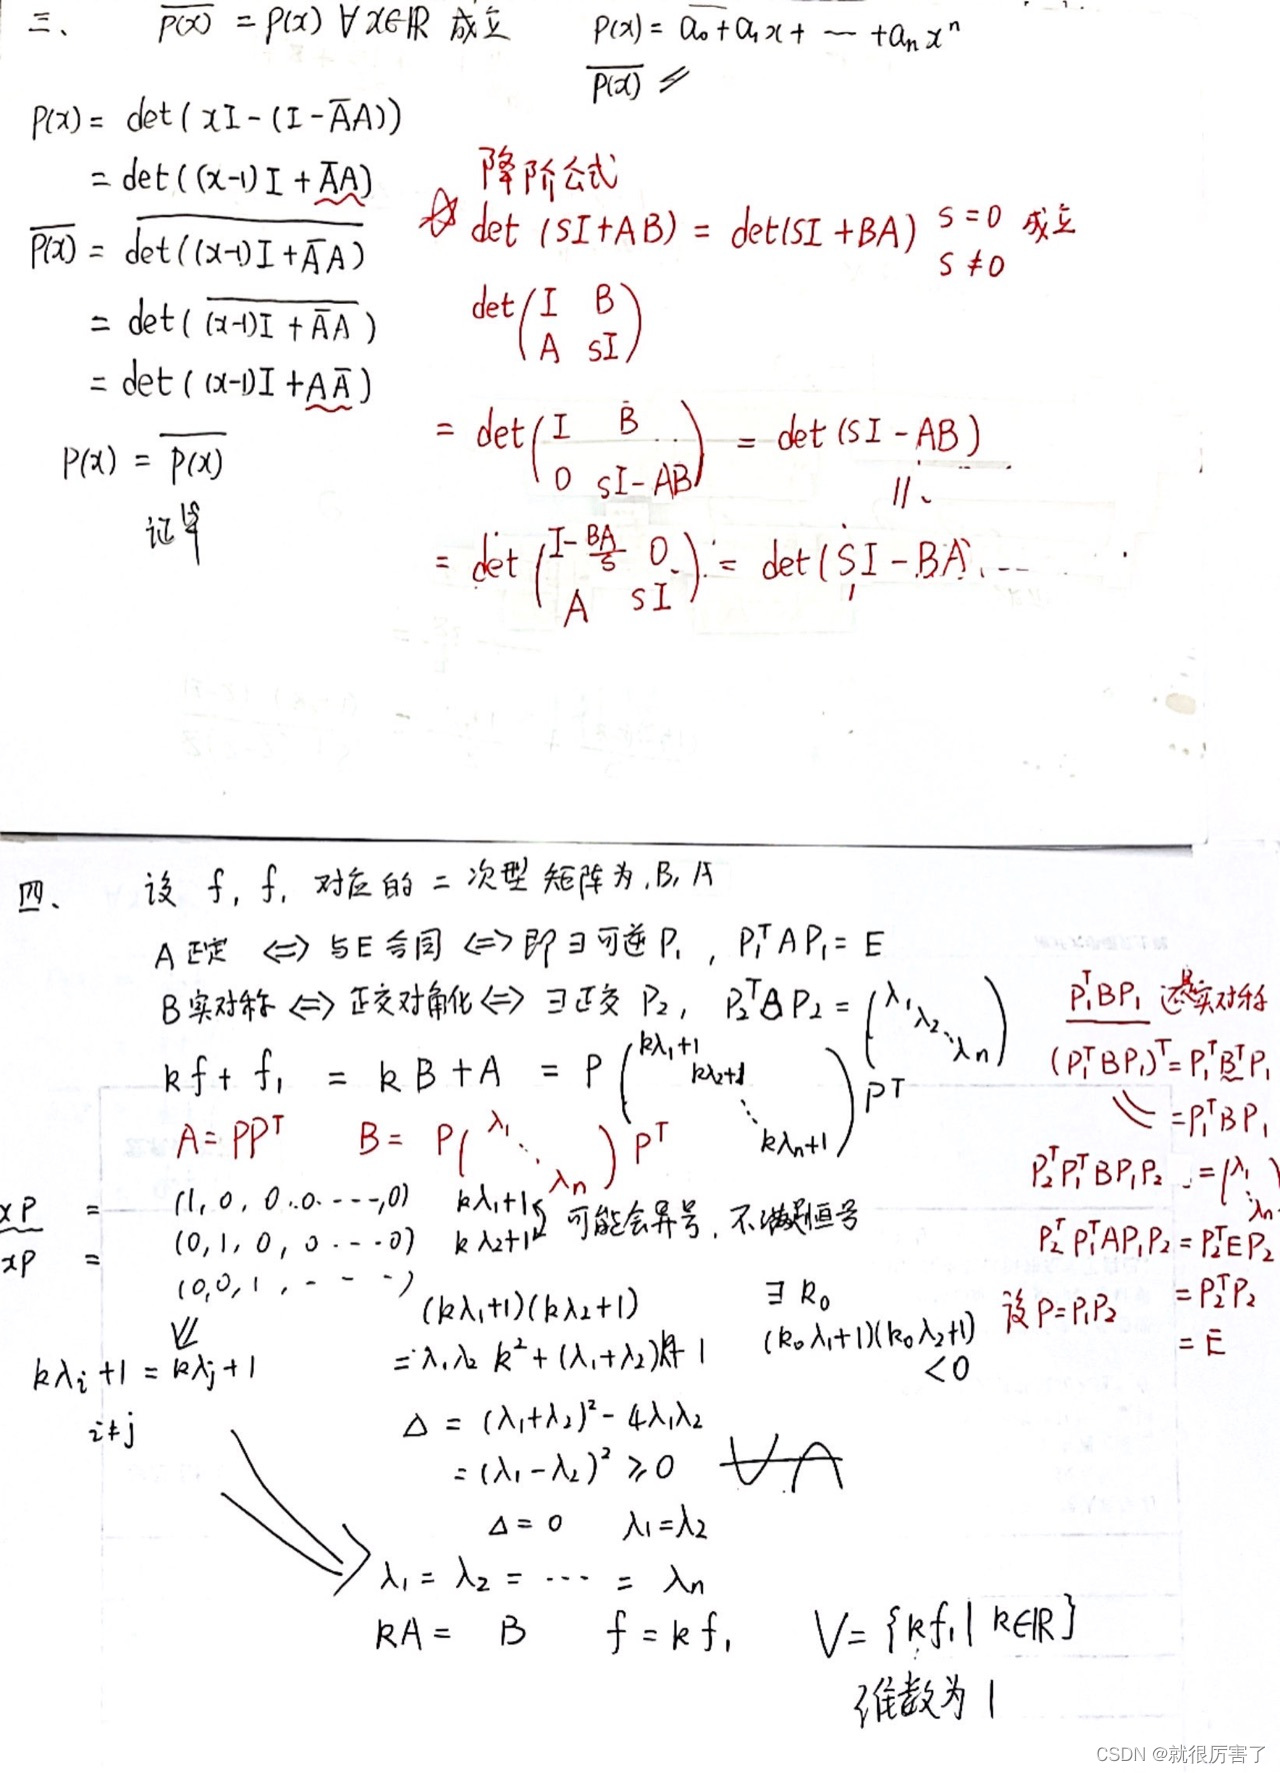 三、 $\overline{P(x)} = P(x)$ ∀x∈ℝ 成立
$P(x) = \overline{a_0 + a_1x + \cdots + a_nx^n}$
$\overline{P(x)}$ =
P(x) = det(xI-(I-A̅A))
= det((x-1)I + A̅A)
$\overline{P(x)} = \overline{det((x-1)I + \overline{A}A)}$
= det($\overline{(x-1)I + \overline{A}A}$)
= det((x-1)I + AA̅)
$P(x) = \overline{P(x)}$
证毕
降阶公式
☆ det (SI+AB) = det(SI+BA) S=0 成立
S≠0
det(I B
A sI)
= det(I B
0 sI-AB) = det(SI-AB)
||
= det(I-BA/s 0
A sI) = det(SI-BA) ...
四、 设 f, f₁ 对应的二次型矩阵为 B, A
A正定 ⟺ 与E合同 ⟺ 即∃可逆P₁, P₁ᵀAP₁ = E
B实对称 ⟺ 正交对角化 ⟺ ∃正交 P₂, P₂ᵀBP₂ = (λ₁ λ₂ ⋱ λn)
kf + f₁ = kB + A = P(kλ₁+1 kλ₂+1 ⋱ kλn+1)Pᵀ
A = PPᵀ B = P(λ₁ ⋱ λn)Pᵀ
xP = (1, 0, 0, 0, ..., 0) kλ₁+1
xP = (0, 1, 0, 0 ... 0) kλ₂+1 可能会异号, 不满足恒号
(0, 0, 1, - - -)
⇓
kλi+1 = kλj+1
i≠j
(kλ₁+1)(kλ₂+1)
= λ₁λ₂k² + (λ₁+λ₂)k+1
Δ = (λ₁+λ₂)² - 4λ₁λ₂
= (λ₁-λ₂)² ≥ 0
Δ = 0 λ₁=λ₂
∃ k₀
(k₀λ₁+1)(k₀λ₂+1)
< 0
λ₁ = λ₂ = ⋯ = λn
kA = B f = kf₁
V = {kf₁ | k∈ℝ}
维数为 1
P₁ᵀBP₁ 还是实对称
(P₁ᵀBP₁)ᵀ = P₁ᵀBᵀP₁
= P₁ᵀBP₁
P₂ᵀP₁ᵀBP₁P₂ = (λ₁ ⋱ λn
P₂ᵀP₁ᵀAP₁P₂ = P₂ᵀEP₂
设P=P₁P₂ = P₂ᵀP₂
= E
CSDN @就很厉害了